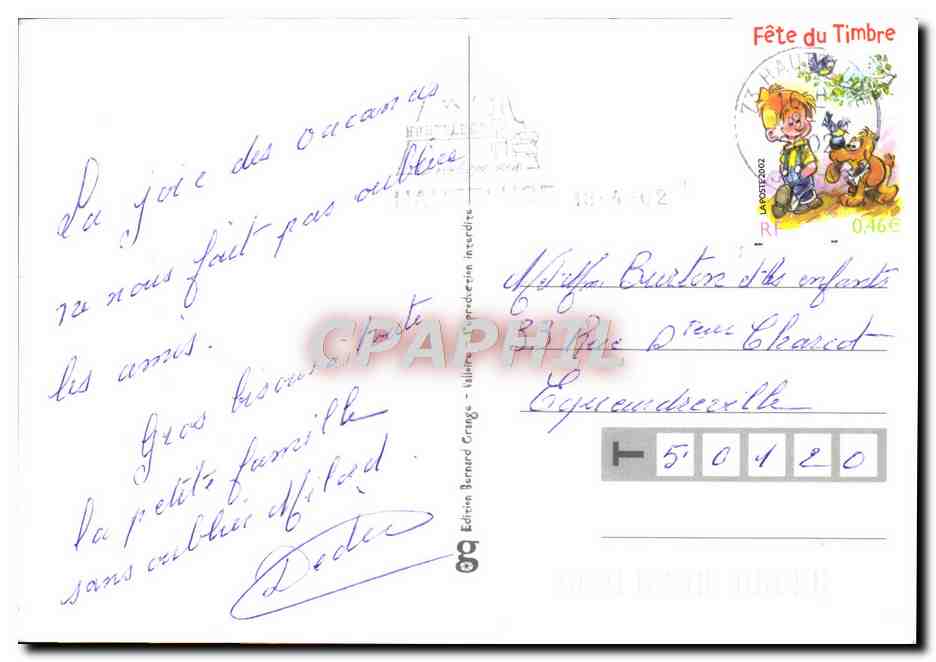 La joie des vacances
ne nous fait pas oublier
les amis.
Gros bisous à toute
la petite famille
sans oublier Milord.
Dédé
Edition Bernard Grange - Valloire - Reproduction interdite
Fête du Timbre
LA POSTE 2002
RF
0,46€
73 HAUT
18-4-02
Mr Mme Burton et les enfants
33 Rue Dteur Charcot
Equeurdreville
T 50120
CPAPHIL